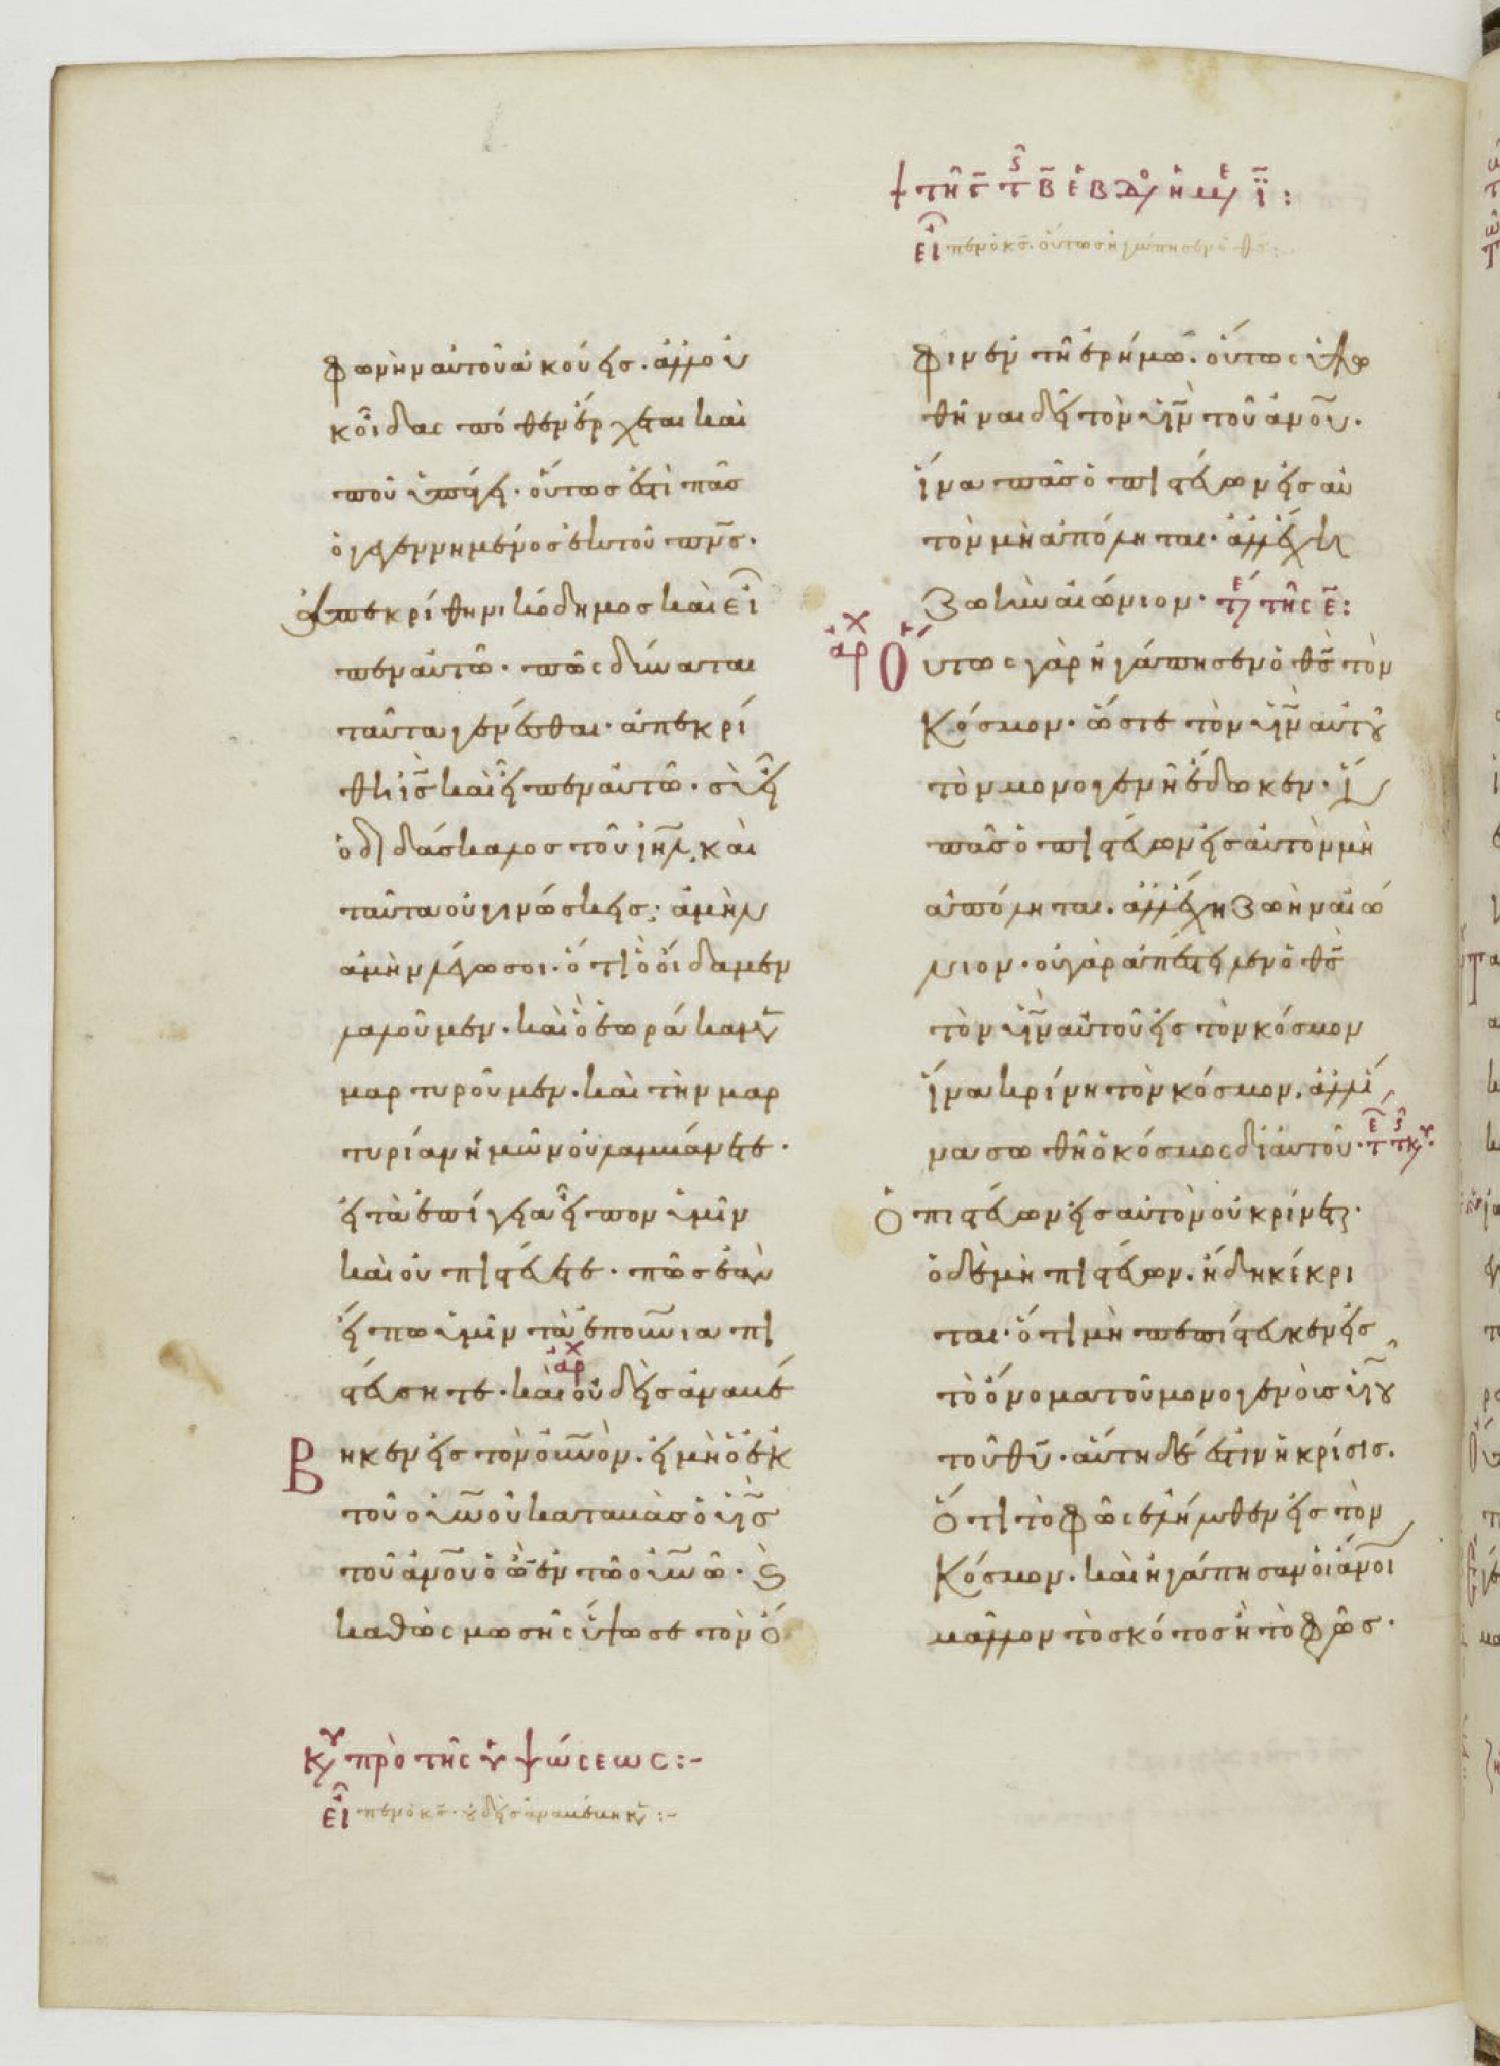 φωνὴν αὐτοῦ ἀκούεις. ἀλλ οὐ
κ οἶδας πόθεν ἔρχεται καὶ
ποῦ ὑπάγει. οὕτως ἐστὶ πᾶσ
ὁ γεγεννημένος ἐκ τοῦ πνς.
ἀπεκρίθη νικόδημος καὶ εἶ
πεν αὐτῶ. πῶς δύναται
ταῦτα γενέσθαι. ἀπεκρί
θη ὁ ις καὶ εἶπεν αὐτῶ. σὺ εἶ
ὁ διδάσκαλος τοῦ ιηλ, καὶ
ταῦτα οὐ γινώσκεις; ἀμὴν
ἀμὴν λέγω σοι. ὅτι ὃ οἴδαμεν
λαλοῦμεν. καὶ ὃ ἑωράκαμεν
μαρτυροῦμεν. καὶ τὴν μαρ
τυρίαν ἡμῶν οὐ λαμβάνετε.
εἰ τὰ ἐπίγεια εἶπον ὑμῖν
καὶ οὐ πιστεύετε. πῶς ἐὰν
εἴπω ὑμῖν τὰ ἐπουνια πι
στεύσητε. καὶ οὐδεὶς ἀναβέ
ἀρχ
βηκεν εἰς τὸν οὐνὸν. εἰ μὴ ὁ ἐκ
τοῦ οὐνοῦ καταβὰς ὁ υἱς
τοῦ ἀνου ὁ ὢν ἐν τῶ οὐνῶ. Ϛ
καθὼς μωσῆς ὕψωσε τὸν ὄ
κυ πρὸ τῆς ὑψώσεως:-
εἶπεν ὁ κς. οὐδεὶς ἀναβέβηκεν:-
τῆς γ τ β ἑβδο ἡμε ι:
εἶπεν ὁ κς. οὕτως ἠγάπησεν ὁ θς:
φιν ἐν τῆ ἐρήμω. οὕτως ὑψω
θῆναι δεῖ τὸν υἱν τοῦ ἀνου.
ἵνα πᾶς ὁ πιστεύων εἰς αὐ
τὸν μὴ ἀπόληται. ἀλλ ἔχη
ζωὴν αἰώνιον. τε τῆς ε:
ἀρχ Οὕτως γὰρ ἠγάπησεν ὁ θς τὸν
κόσμον. ὥστε τὸν υἱν αὐτοῦ
τὸν μονογενῆ ἔδωκεν. ἵν
πᾶς ὁ πιστεύων εἰς αὐτὸν μὴ
ἀπόληται. ἀλλ ἔχη ζωὴν αἰώ
νιον. οὐ γὰρ ἀπέστειλεν ὁ θς
τὸν υἱν αὐτοῦ εἰς τὸν κόσμον
ἵνα κρίνη τὸν κόσμον. ἀλλ ἵ
να σωθῆ ὁ κόσμος δι αὐτοῦ. τε τ κυ.
ὁ πιστεύων εἰς αὐτὸν οὐ κρίνεται.
ὁ δὲ μὴ πιστεύων. ἤδη κέκρι
ται. ὅτι μὴ πεπίστευκεν εἰς
τὸ ὄνομα τοῦ μονογενοῦς υἱου
τοῦ θυ. αὕτη δέ ἐστιν ἡ κρίσις.
ὅτι τὸ φῶς ἐλήλυθεν εἰς τὸν
κόσμον. καὶ ἠγάπησαν οἱ ἄνοι
μᾶλλον τὸ σκότος ἢ τὸ φῶς.